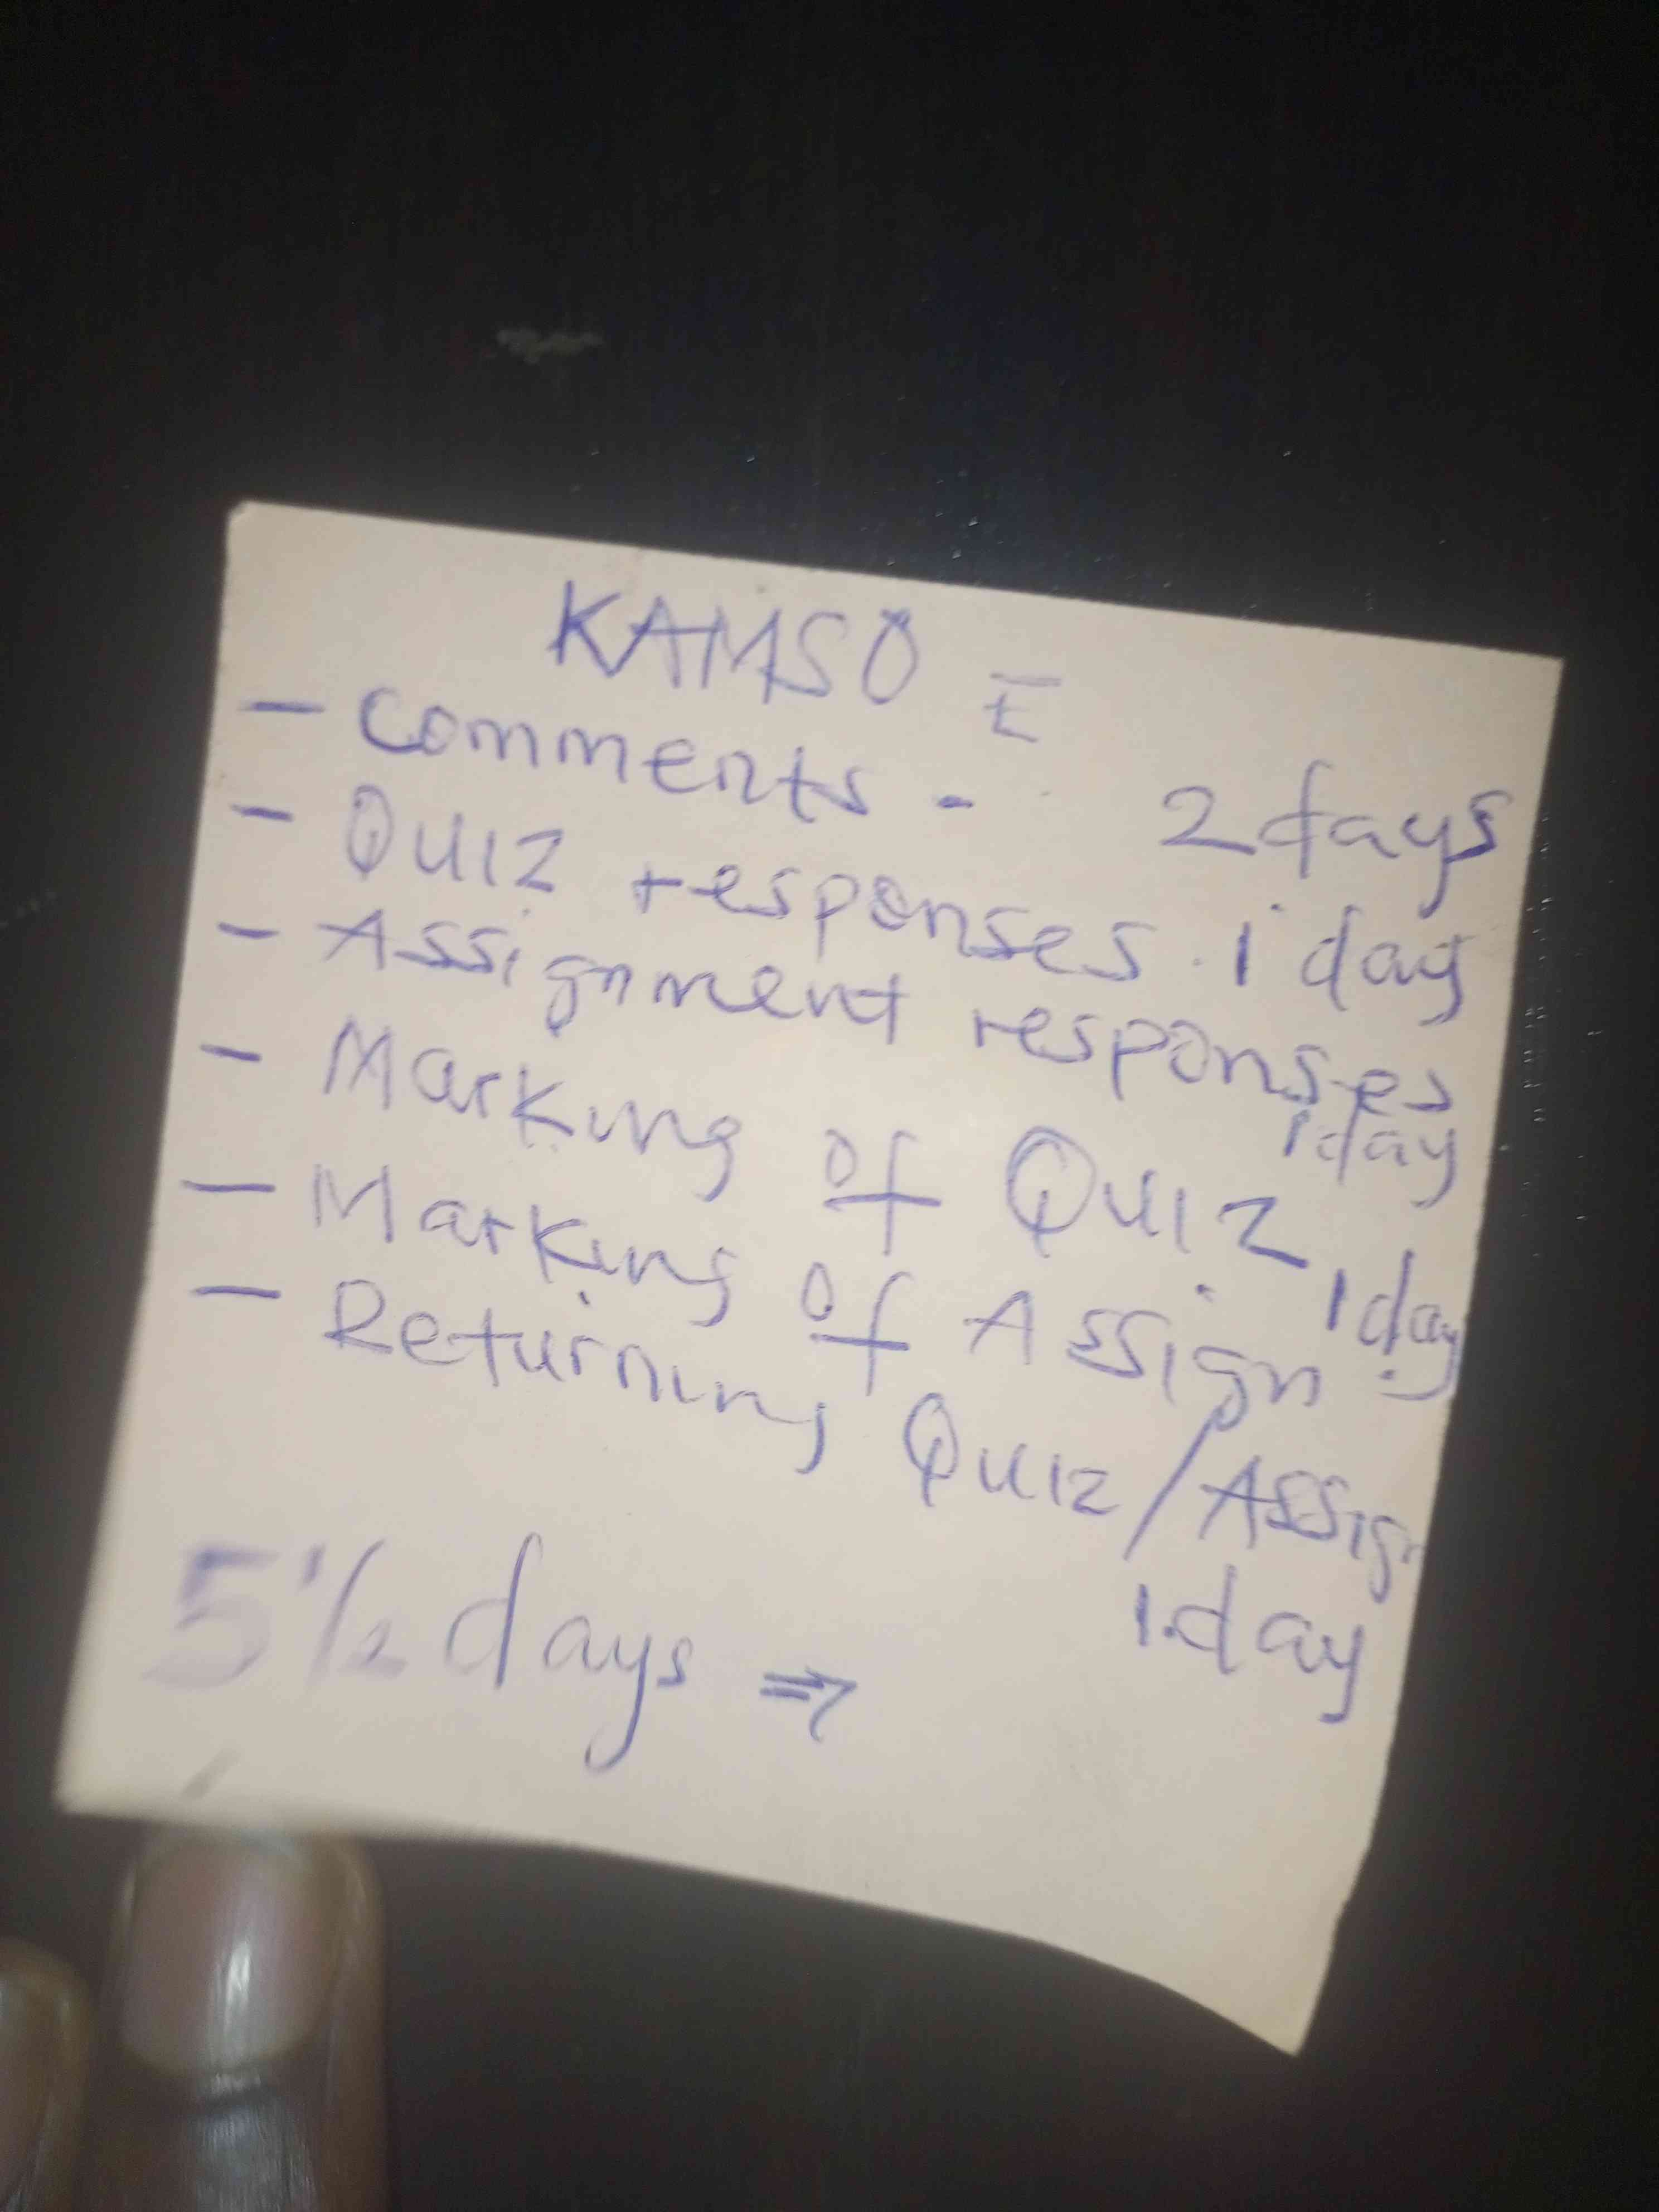 KAMSO
- Comments - 2 days
- Quiz responses. 1 day
- Assignment responses
1 day
- Marking of Quiz
- Marking of Assign 1 day
- Returning Quiz/Assig
1 day
5 1/2 days ⇒